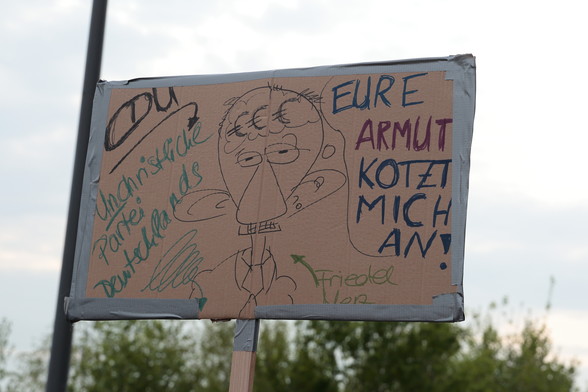 CDU
Unchristliche
Partei
Deutschlands
€ € €
EURE
ARMUT
KOTZT
MICH
AN!
Friedel